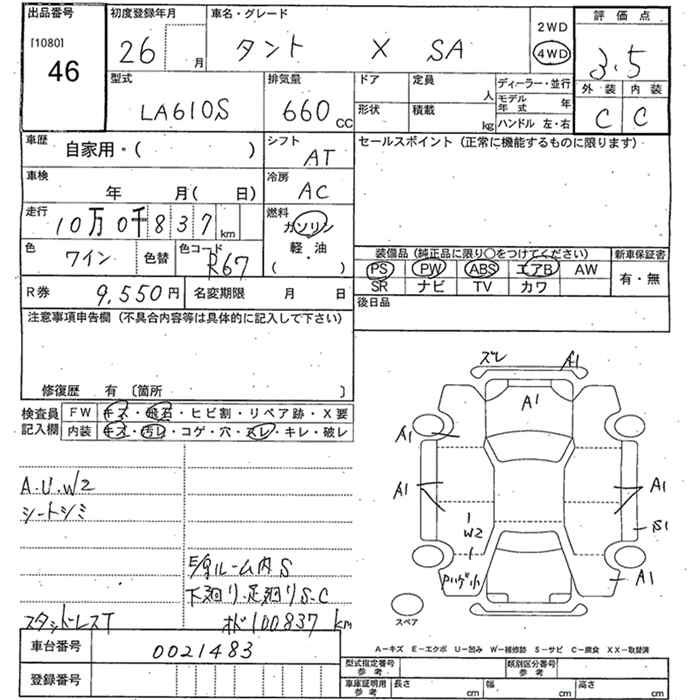 出品番号
[1080]
46
初度登録年月
26 月
車名・グレード
タント X SA
2WD
4WD
評価点
3.5
外装 内装
C C
型式
LA610S
排気量
660 CC
ドア
定員
人
形状
積載
kg
ディーラー・並行
モデル年式 年
ハンドル 左・右
車歴
自家用・( )
シフト
AT
セールスポイント (正常に機能するものに限ります)
車検
年 月( 日)
冷房
AC
走行
10万0千837km
燃料
ガソリン
軽・油
( ・ )
色
ワイン
色替
色コード
R67
装備品 (純正品に限り○をつけてください)
新車保証書
PS PW ABS エアB AW
SR ナビ TV カワ
有・無
R券
9,550円
名変期限 月 日
後日品
注意事項申告欄 (不具合内容等は具体的に記入して下さい)
修復歴 有 〔箇所 〕
検査員
記入欄
FW キズ・飛石・ヒビ割・リペア跡・X要
内装 キズ・汚レ・コゲ・穴・スレ・キレ・破レ
A.U.W2
シートシミ
E/gルーム内S
下廻り・足廻りS-C
スタッドレスT
オド100837km
ズレ
A1
A1
A1
A1
A1
S1
W2
A1
スペア
A-キズ E-エクボ U-凹み W-補修跡 S-サビ C-腐食 XX-取替済
車台番号
0021483
登録番号
型式指定番号
参考
類別区分番号
参考
車庫証明用
参考
長さ cm
幅 cm
高さ cm